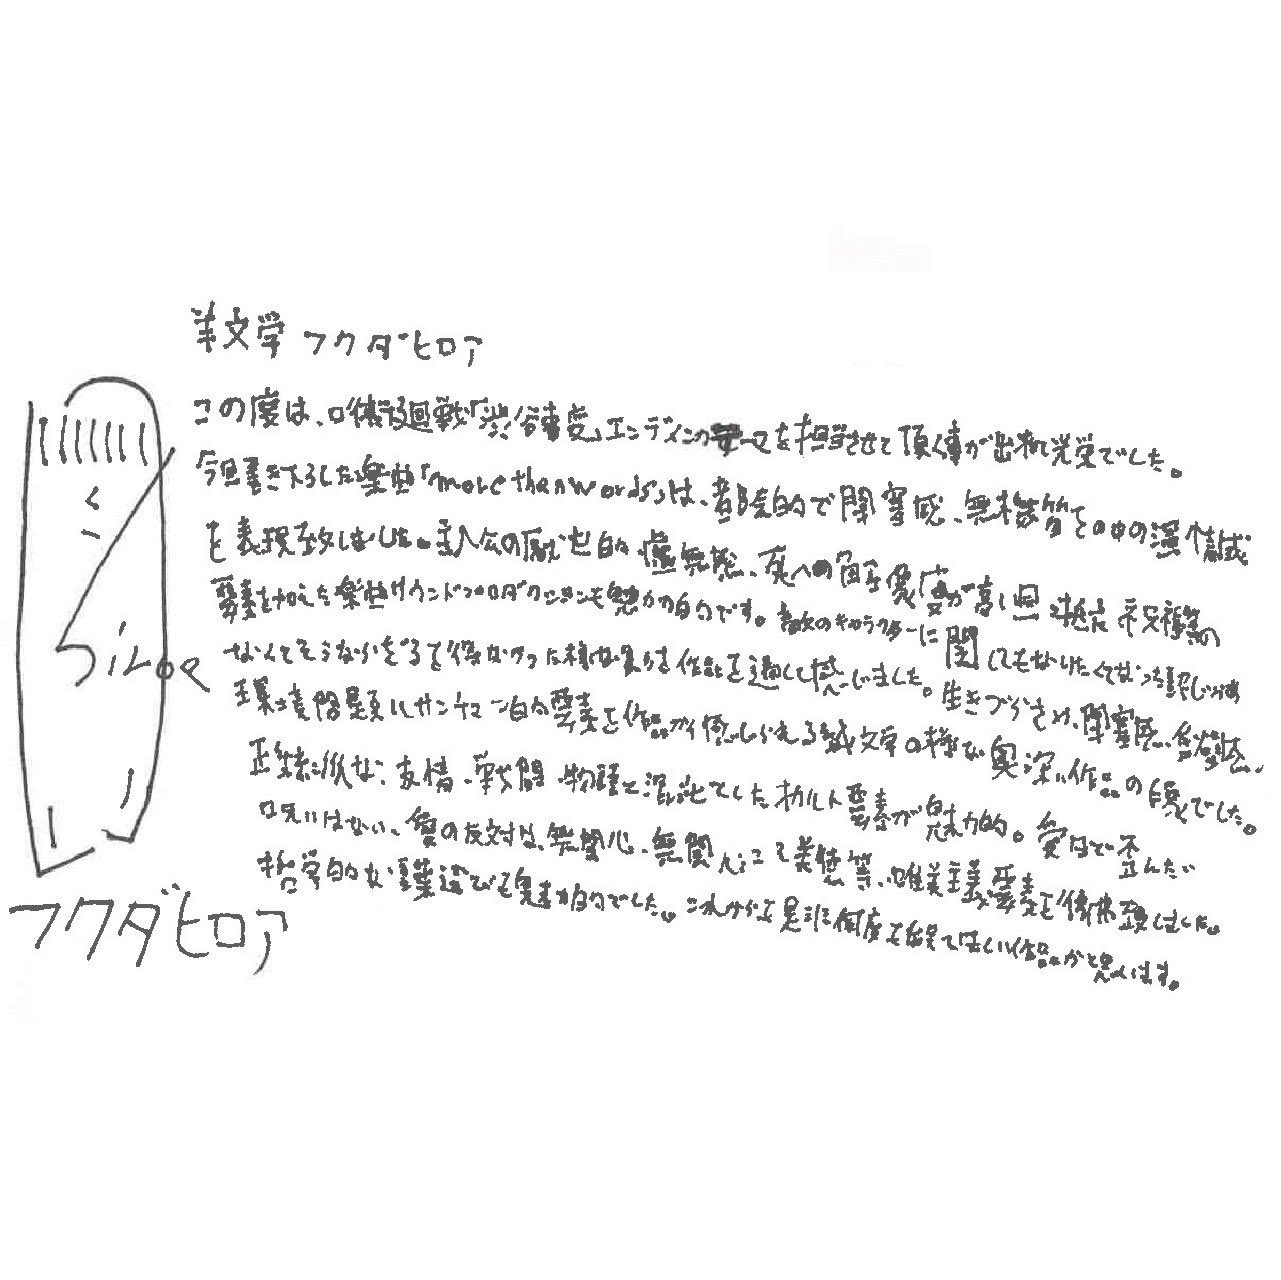 羊文学 フクダヒロア
この度は、呪術廻戦「渋谷事変」エンディングテーマを担当させて頂く事が出来光栄でした。
今回書き下ろした楽曲「more than words」は、都会的で閉塞感、無機質その中の温情感
を表現致しました。主人公の厭世的、虚無感、死への解像度が高い
要素を加えた楽曲サウンドプロダクションも魅力的です。敵のキャラクターに関してもなりたくてなった訳じゃ
なくてそうならざるを得なかった様な気を作品を通して感じました。生きづらさや、閉塞感、
環境問題にサンチマン的要素を作品から感じられる純文学の様な奥深い作品の印象でした。
正統派な、友情、戦闘、物語と混沌としたオカルト要素が魅力的。愛ほど歪んだ
呪いはない、愛の反対は、無関心、無関心こそ美徳等、唯美主義要素を彷彿致しました。
哲学的な言葉選びも魅力的でした。これからも是非何度も観てほしい作品かと思います。
Siroa
フクダヒロア